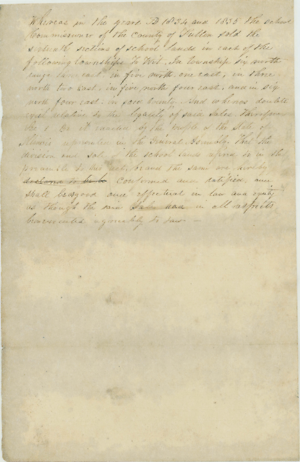 Whereas in the years AD 1834 and 1835 the school
Commissioner of the County of Fulton sold the
sixteenth sections of school lands in each of the
following townships To Wit. In township six north
range one east, in five north one east, in three
north two east, in five north four east, and in six
north four east, in said County. And whereas doubts
exist relative to the legality of such sales Therefore
Be it enacted by the people of the State of
Illinois represented in the General Assembly That the
sales of the school lands
be and the same are hereby
declared to be confirmed and ratified, and
shall be good and effectual in law and equity
as though the same had in all respects
been conducted agreeably to law